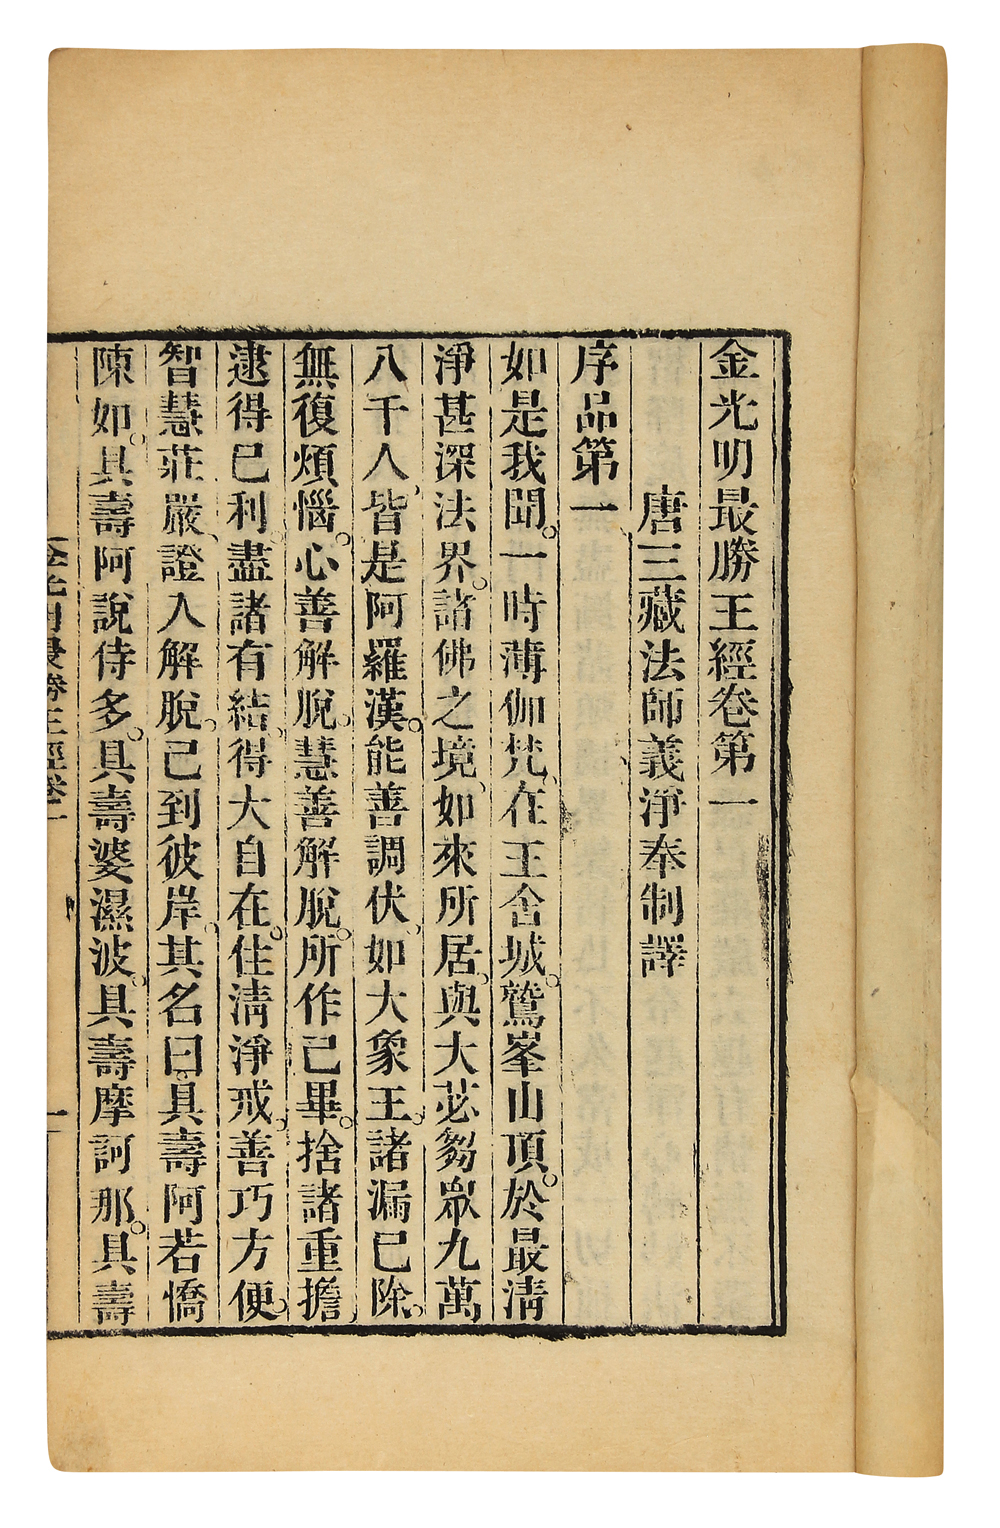 金光明最勝王經卷第一
唐三藏法師義淨奉制譯
序品第一
如是我聞。一時薄伽梵、在王舍城。鷲峯山頂。於最清
淨甚深法界。諸佛之境、如來所居。與大苾芻眾九萬
八千人、皆是阿羅漢。能善調伏、如大象王。諸漏已除。
無復煩惱。心善解脫。慧善解脫。所作已畢。捨諸重擔、
逮得已利。盡諸有結。得大自在。住清淨戒。善巧方便。
智慧莊嚴、證入解脫。已到彼岸。其名曰。具壽阿若憍
陳如。具壽阿說侍多。具壽婆濕波。具壽摩訶那。具壽
金光明最勝王經卷一
一